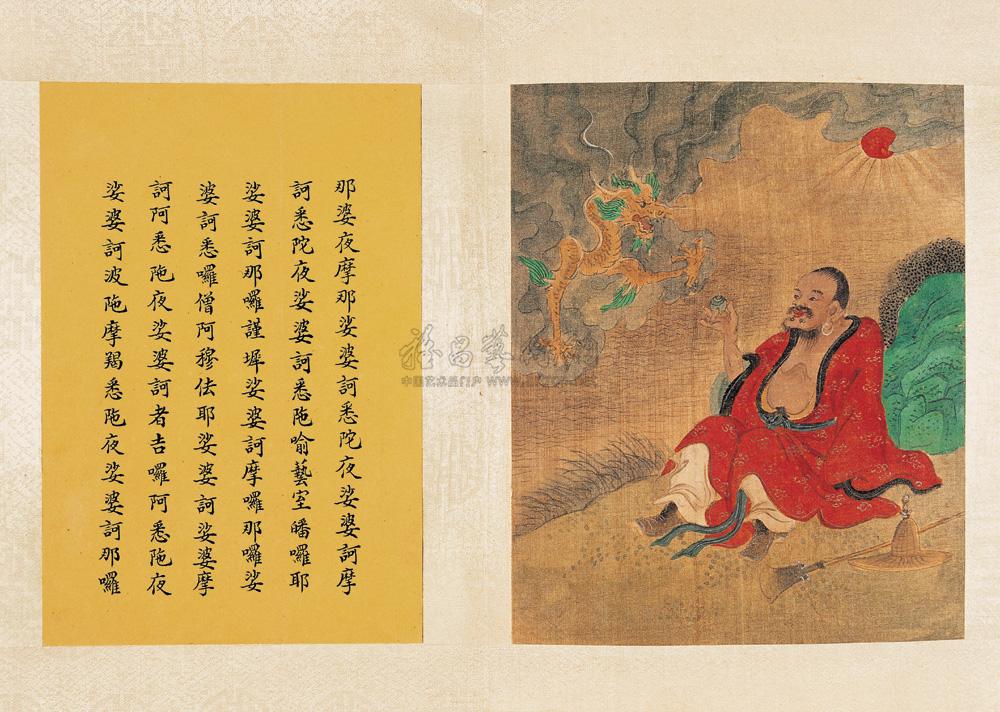 那婆夜摩那娑婆訶悉陀夜娑婆訶摩
訶悉陀夜娑婆訶悉陁喻藝室皤囉耶
娑婆訶那囉謹墀娑婆訶摩囉那囉娑
婆訶悉囉僧阿穆佉耶娑婆訶娑婆摩
訶阿悉陁夜娑婆訶者吉囉阿悉陁夜
娑婆訶波陁摩羯悉陁夜娑婆訶那囉